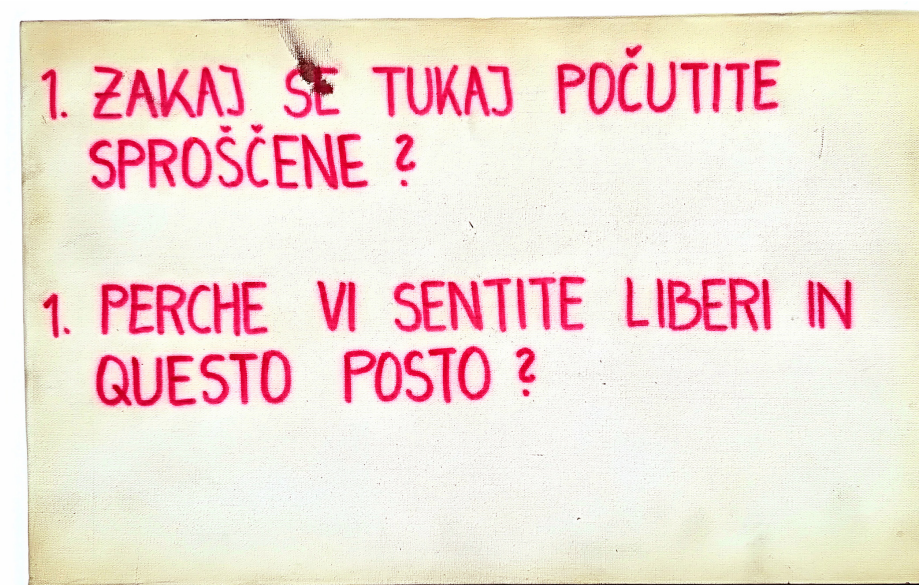 1. ZAKAJ SE TUKAJ POČUTITE
SPROŠČENE ?
1. PERCHE VI SENTITE LIBERI IN
QUESTO POSTO ?